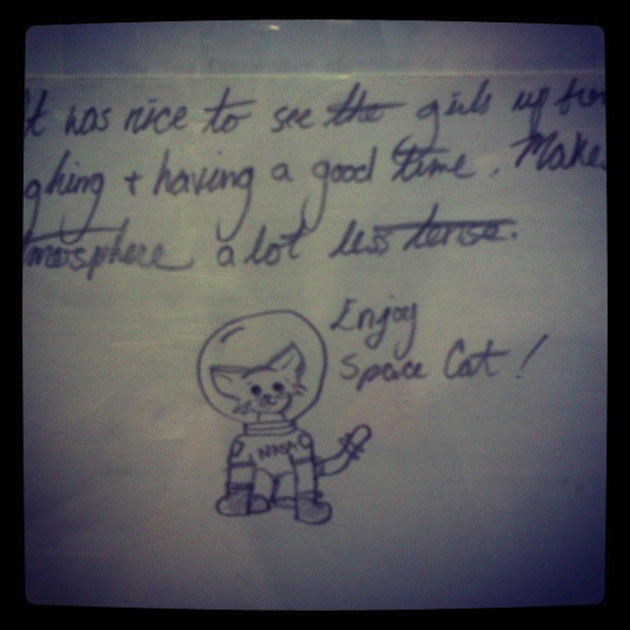 It was nice to see the girls up
ghing + having a good time. Make
mosphere a lot less tense.
Enjoy
Space Cat!
NASA